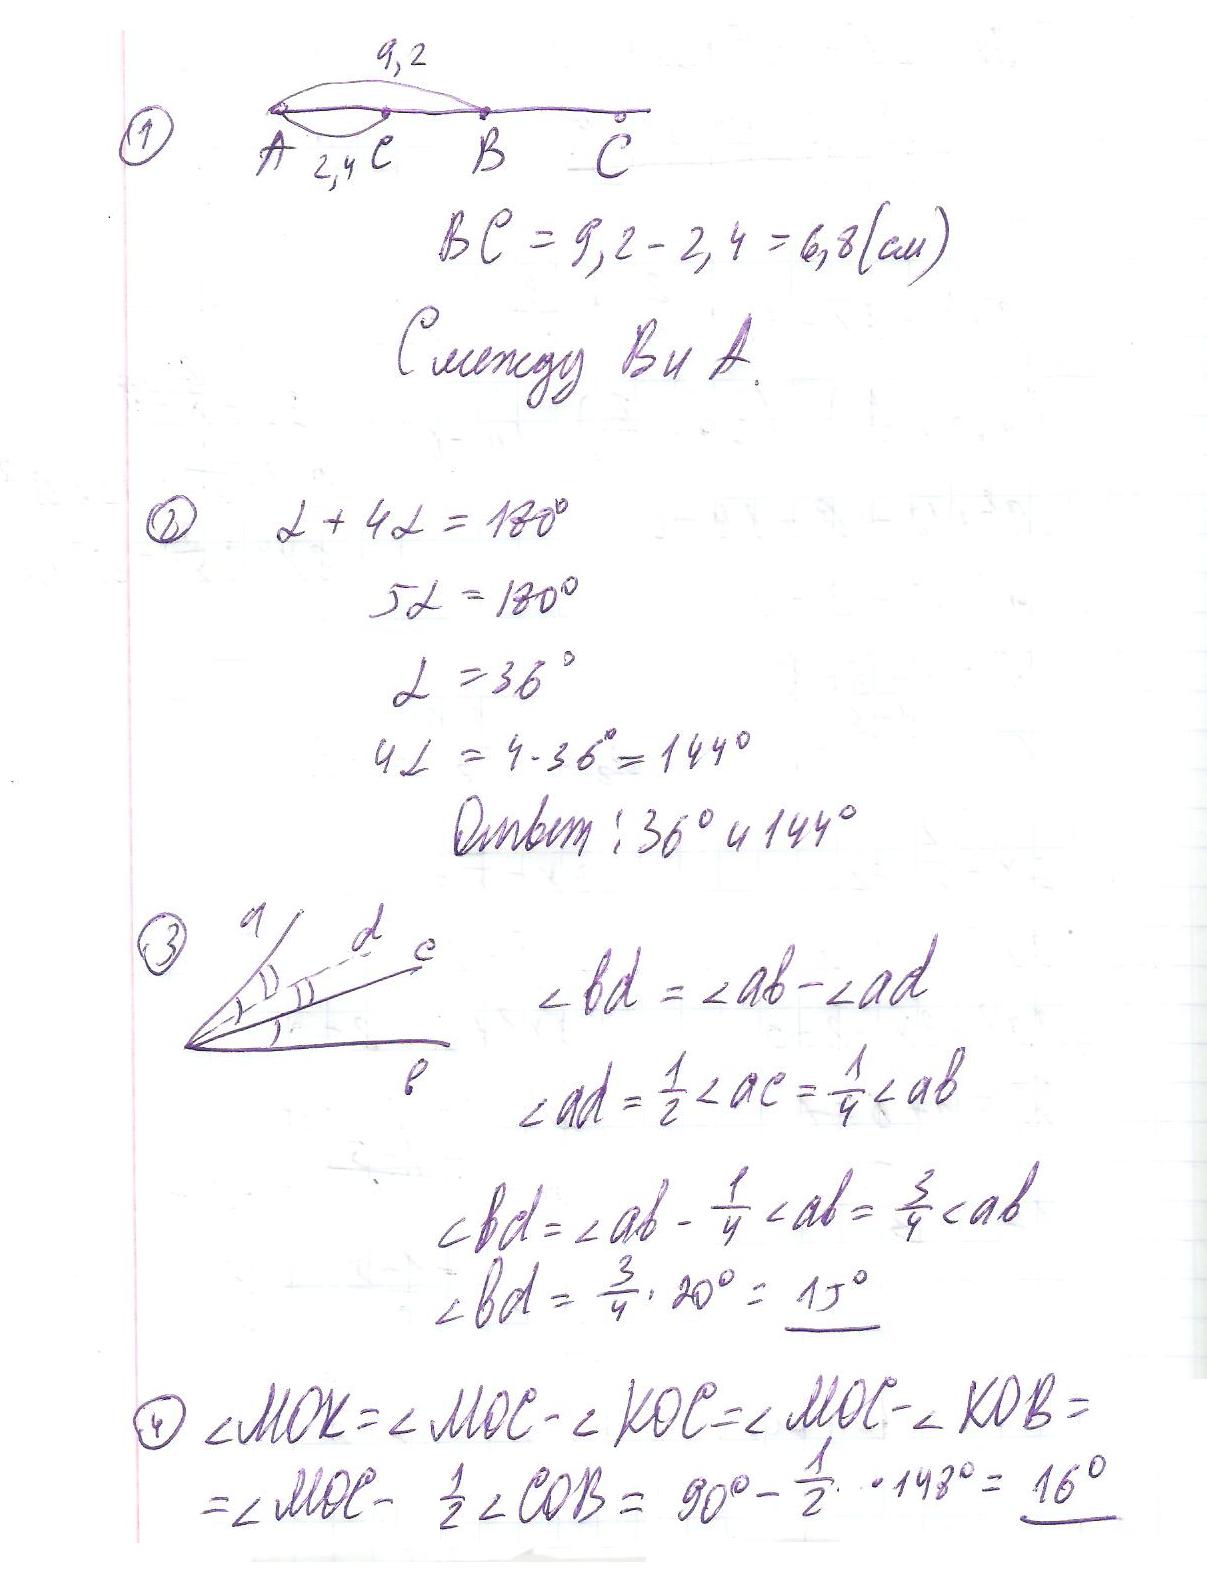 9,2
1
A 2,4 C B C
BC = 9,2 - 2,4 = 6,8 (см)
C между B и A.
2 α + 4α = 180°
5α = 180°
α = 36°
4α = 4·36° = 144°
Ответ: 36° и 144°
3 a d c
b
∠bd = ∠ab - ∠ad
∠ad = 1/2 ∠ac = 1/4 ∠ab
∠bd = ∠ab - 1/4 ∠ab = 3/4 ∠ab
∠bd = 3/4 · 20° = 15°
4 ∠MOK = ∠MOC - ∠KOC = ∠MOC - ∠KOB =
= ∠MOC - 1/2 ∠COB = 90° - 1/2 · 148° = 16°